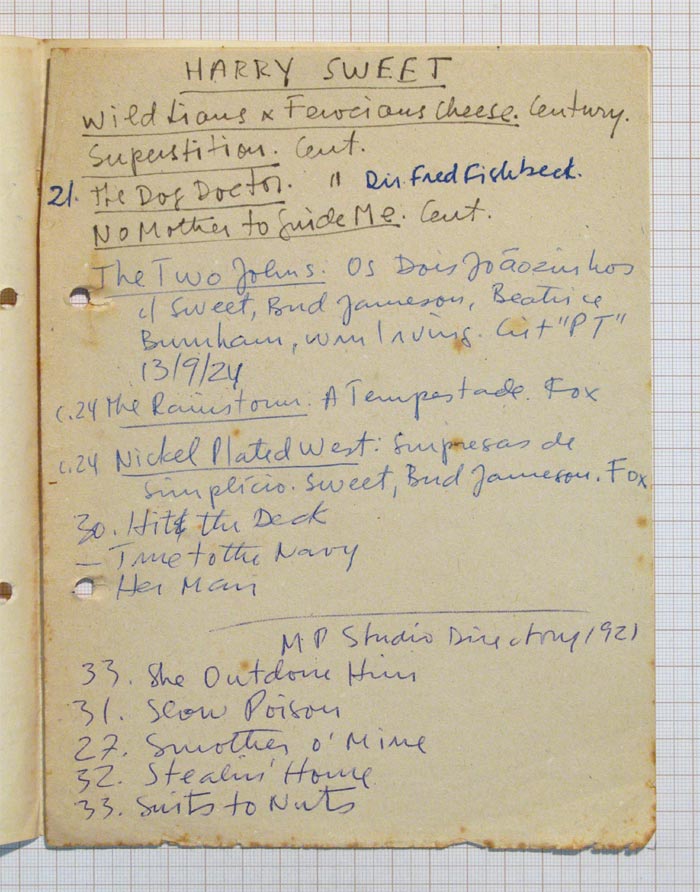 HARRY SWEET
Wild Lions & Ferocious Cheese. Century.
Superstition. Cent.
21. The Dog Doctor. " Dir. Fred Fishbeck.
No Mother to Guide Me. Cent.
The Two Johns. Os Dois Joãozinhos
c/ Sweet, Bud Jameson, Beatrice
Burnham, Wm Irving. Crit "PT"
13/9/24
c.24 The Rainstorm. A Tempestade. Fox
c.24 Nickel Plated West: Surpresas de
Simplício. Sweet, Bud Jameson. Fox
30. Hit the Deck
— True to the Navy
— Her Man
MP Studio Directory 1921
33. She Outdone Him
31. Slow Poison
27. Smother o' Mine
32. Stealin' Home
33. Suits to Nuts